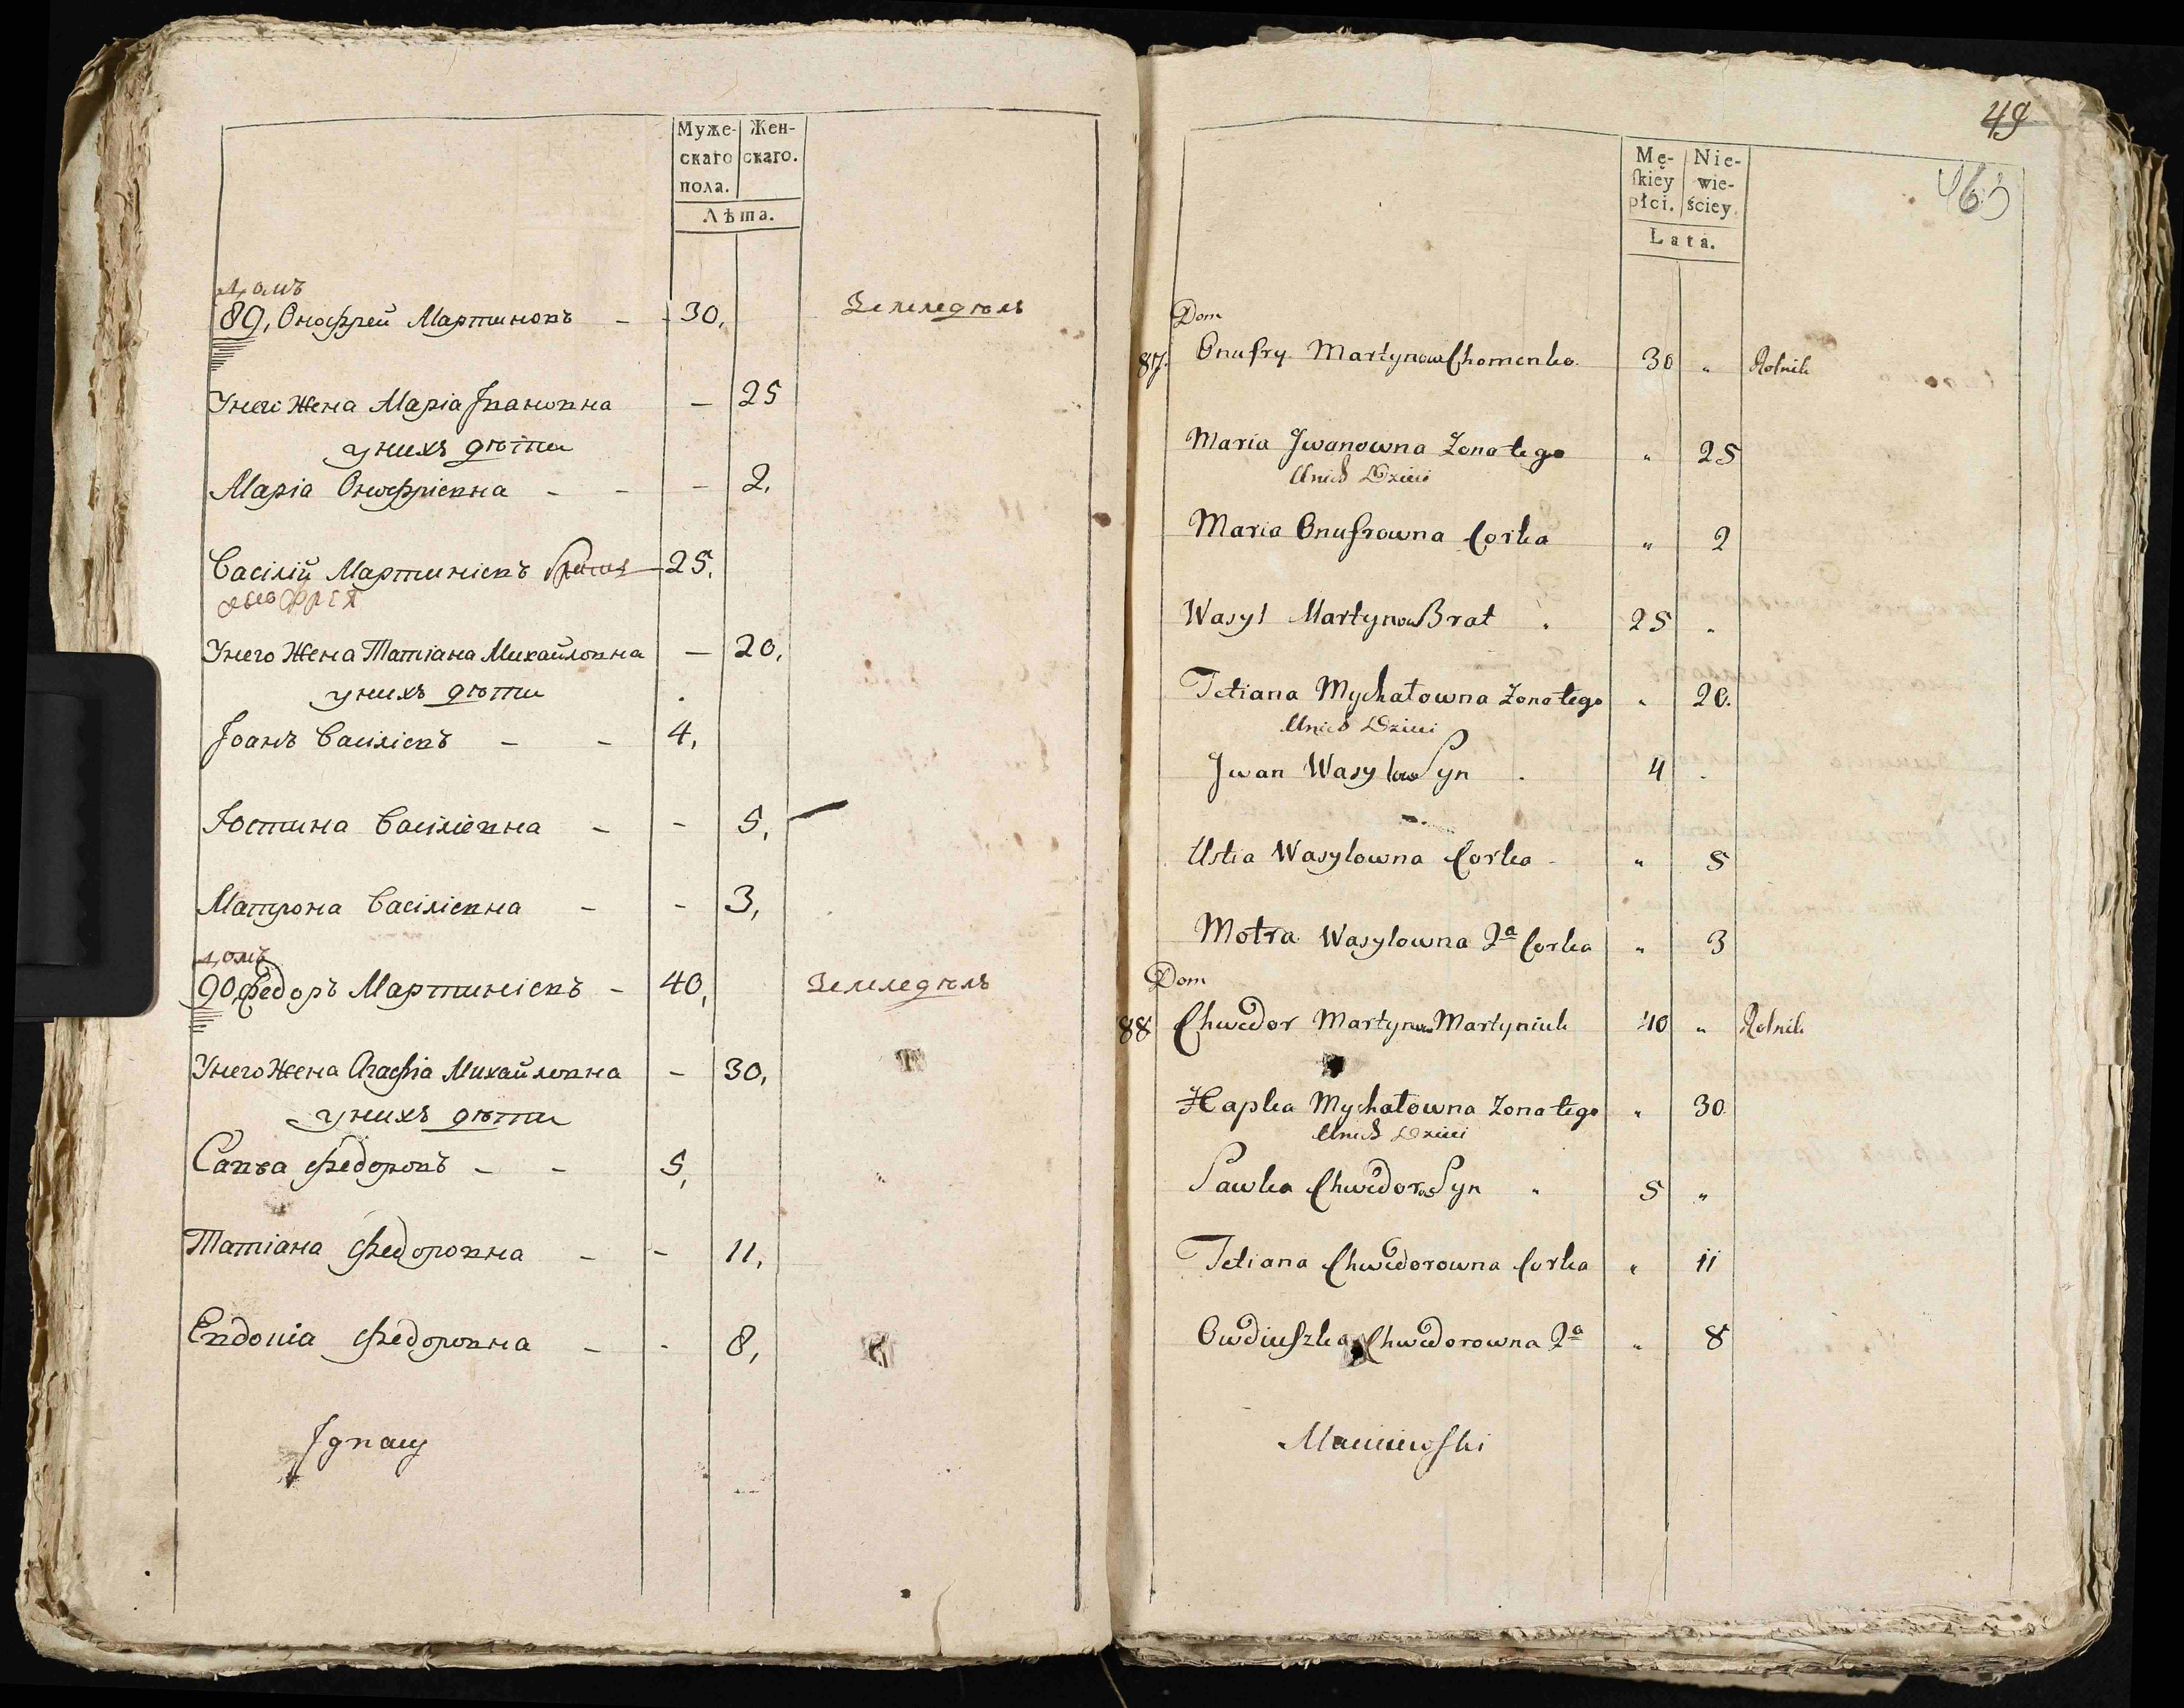 Муже-
скаго
пола.
Жен-
скаго.
Лѣта.
домъ
89, Онофрей Мартиновъ - - 30, Земледѣль
У него Жена Марıа Ивановна — 25
у нихъ дѣти
Марıа Онофрıевна - - - 2,
Васıлıй Мартинıевъ 25,
У него Жена Татıана Михайловна — 20,
у нихъ дѣти
Іоанъ Васıлıевъ - - 4,
Іюстина Васıлıевна - - 5,
Матрона Васıлıевна - - 3,
домъ
90, Федоръ Мартинıевъ - 40, Земледѣль
У него Жена Агафıа Михайловна - 30,
у нихъ дѣти
Савва Федоровъ - - 5,
Татıана Федоровна - - 11,
Евдокıа Федоровна - - 8,
Ignacy
49
463
Mę-
ſkiéy
płci.
Nie-
wie-
ściey.
Lata.
Dom
87. Onufry Martynow Chomenko. 30 " Rolnik
Maria Jwanowna Zona tego " 25
U nich Dzieci
Maria Onufrowna Corka " 2
Wasyl Martynow Brat " 25 "
Tetiana Mychałowna Zona tego " 20.
U nich Dzieci
Jwan Wasylow Syn . 4 .
Ustia Wasylowna Corka - " 5
Motra Wasylowna 2a Corka " 3
Dom
88 Chwedor Martynow Martyniuk 40 " Rolnik
Hapka Mychałowna Zona tego " 30
U nich Dzieci
Sawka Chwedorow Syn " 5 "
Tetiana Chwedorowna Corka " 11
Owdiuszka Chwedorowna 2a " 8